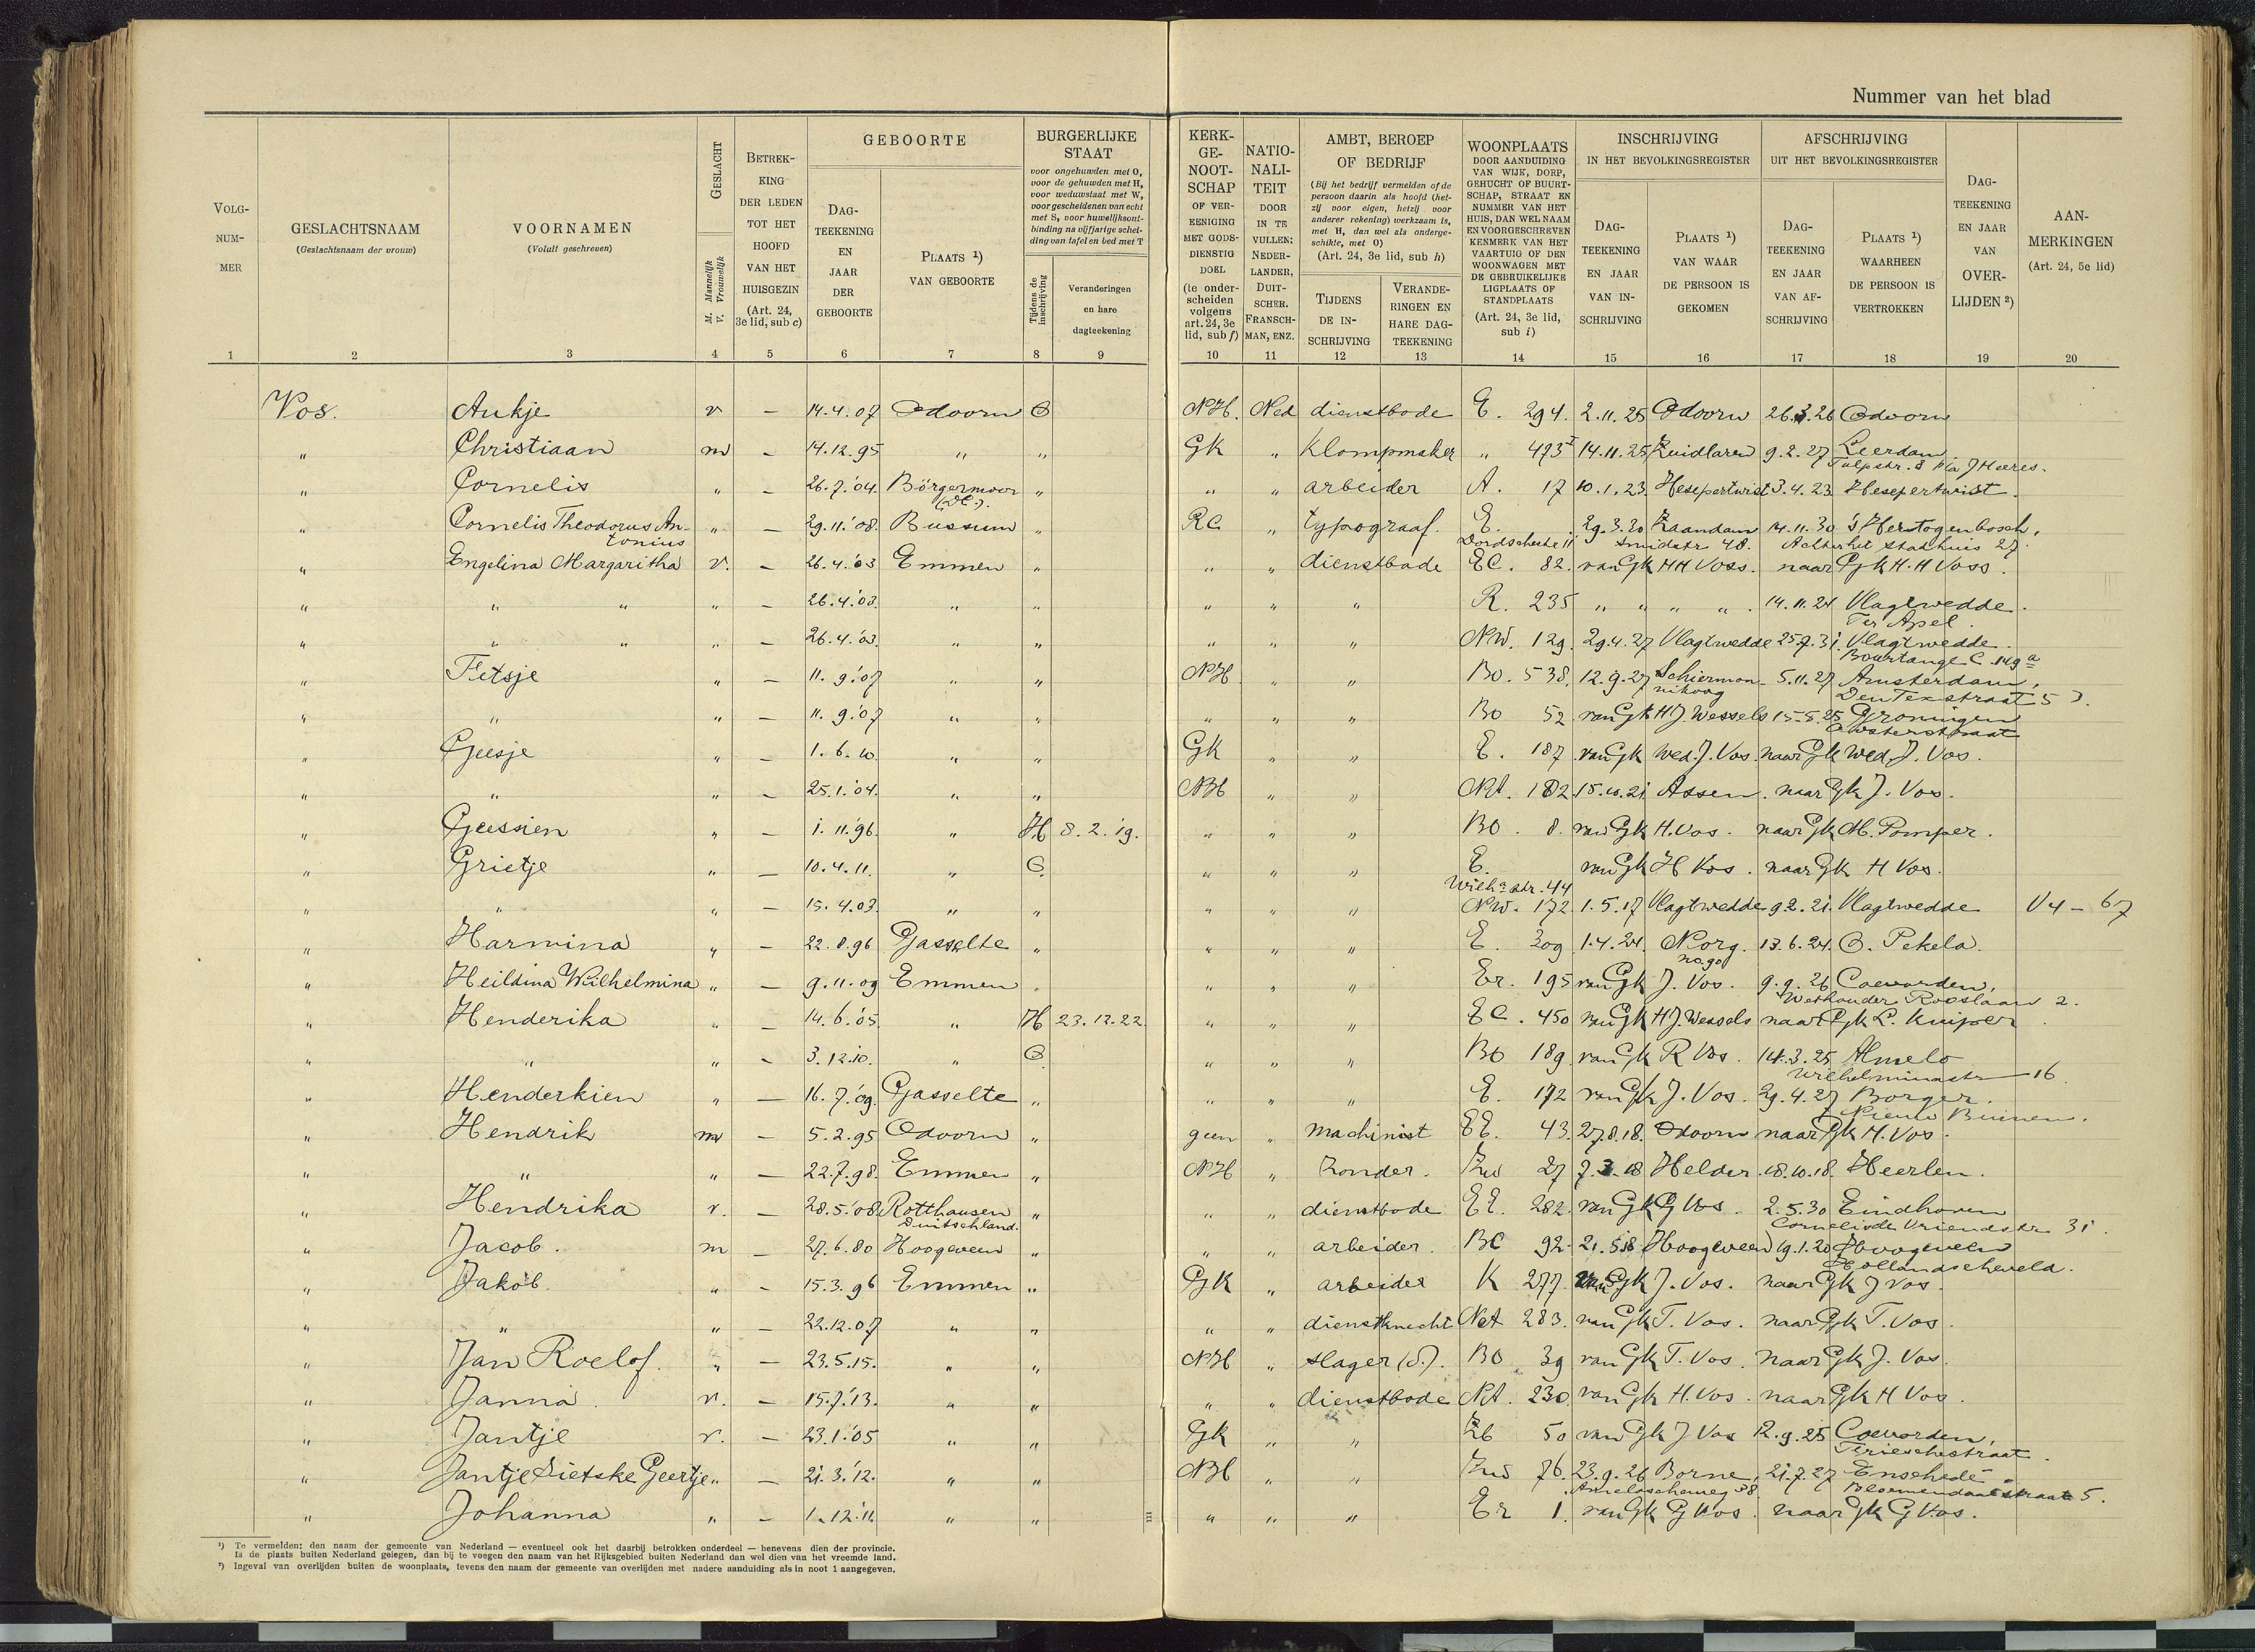 Nummer van het blad
VOLG-NUM-MER
GESLACHTSNAAM
(Geslachtsnaam der vrouw)
VOORNAMEN
(Voluit geschreven)
GESLACHT
M. Mannelijk
V. Vrouwelijk
BETREK-KING DER LEDEN TOT HET HOOFD VAN HET HUISGEZIN
(Art. 24, 3e lid, sub c)
GEBOORTE
DAG-TEEKENING EN JAAR DER GEBOORTE
PLAATS ¹) VAN GEBOORTE
BURGERLIJKE STAAT
voor ongehuwden met O, voor de gehuwden met H, voor weduwstaat met W, voor gescheidenen van echt met S, voor huwelijksont-binding na vijfjarige schei-ding van tafel en bed met T
Tijdens de inschrijving
Veranderingen en hare dagteekening
KERK-GE-NOOT-SCHAP OF VER-EENIGING MET GODS-DIENSTIG DOEL
(te onder-scheiden volgens art. 24, 3e lid, sub f)
NATIO-NALI-TEIT DOOR IN TE VULLEN: NEDER-LANDER, DUIT-SCHER. FRANSCH-MAN, ENZ.
AMBT, BEROEP OF BEDRIJF
(Bij het bedrijf vermelden of de persoon daarin als hoofd (het-zij voor eigen, hetzij voor anderer rekening) werkzaam is, met H, dan wel als onderge-schikte, met O)
(Art. 24, 3e lid, sub h)
TIJDENS DE IN-SCHRIJVING
VERANDE-RINGEN EN HARE DAG-TEEKENING
WOONPLAATS
DOOR AANDUIDING VAN WIJK, DORP, GEHUCHT OF BUURT-SCHAP, STRAAT EN NUMMER VAN HET HUIS, DAN WEL NAAM EN VOORGESCHREVEN KENMERK VAN HET VAARTUIG OF DEN WOONWAGEN MET DE GEBRUIKELIJKE LIGPLAATS OF STANDPLAATS
(Art. 24, 3e lid, sub i)
INSCHRIJVING
IN HET BEVOLKINGSREGISTER
DAG-TEEKENING EN JAAR VAN IN-SCHRIJVING
PLAATS ¹) VAN WAAR DE PERSOON IS GEKOMEN
AFSCHRIJVING
UIT HET BEVOLKINGSREGISTER
DAG-TEEKENING EN JAAR VAN AF-SCHRIJVING
PLAATS ¹) WAARHEEN DE PERSOON IS VERTROKKEN
DAG-TEEKENING EN JAAR VAN OVER-LIJDEN ²)
AAN-MERKINGEN
(Art. 24, 5e lid)
1 2 3 4 5 6 7 8 9 10 11 12 13 14 15 16 17 18 19 20
Vos. Aukje v — 14.4.07 Odoorn O NH. Ned dienstbode E. 294. 2.11.25 Odoorn 26.3.26 Odoorn
" Christiaan m - 14.12.95 " " Gk " Klompmaker " 473 I 14.11.25 Zuidlaren 9.2.27 Leerdam
Tulpstr. 8 J Heeres.
" Cornelis " - 26.7.'04. Börgermoor " " " arbeider A. 17 10.1.23. Hesepertwist 3.4.23 Hesepertwist.
" Cornelis Theodorus An-tonius " — 29.11.'08. Bussum " RC " typograaf. E. 29.3.30 Zaandam 14.11.30 's Hertogenbosch,
48. Achter het stadhuis 27.
" Engelina Margaritha v. - 26.4.'03 Emmen " " " dienstbode EC. 82. van Gk HH Voss. naar Gk H.H Voss.
" " " " - 26.4.'03. " " " " " R. 235 " " " " 14.11.24 Vlagtwedde.
Ter Apel.
" " " " - 26.4.'03. " " " " " NW. 129. 29.4.27 Vlagtwedde 25.7.31. Vlagtwedde.
Bourtange C 149 a
" Fetsje " - 11.9.'07 " " NH. " " Bo. 538. 12.9.27 Schiermon-nikoog 5.11.27 Amsterdam,
Den Texstraat 5
" " " — 11.9.'07 " " " " " Bo 52. van Gk H.J. Wessels 15.5.25 Groningen
Oosterstraat
" Geesje " - 1.6.10. " " Gk " " E. 187 van Gk wed. J. Vos. naar Gk wed. J. Vos.
" " " - 25.1.'04. " " NH " " NA. 182 15.10.21 Assen. naar Gk J. Vos.
" Geessien " - 1.11.'96. " H 8.2.'19. " " " BO. 8. van Gk H. Vos. naar Gk M. Pomper.
" Grietje " - 10.4.11. " O. " " " E. van Gk H Vos. naar Gk H Vos.
Wilh.a str. 44
" " " — 15.4.03. " " " " " NW. 172 1.5.17 Vlagtwedde 9.2.21. Vlagtwedde V4 - 67
" Harmina " — 22.8.96 Gasselte " " " " E. 209 1.4.24. Norg. 13.6.24. O. Pekela.
no. 90
" Heildina Wilhelmina " — 9.11.09 Emmen " " " " Er. 195 van Gk J. Vos. 9.9.26 Coevorden,
Wethouder Rooslaan 2.
" Henderika " - 14.6.'05 " H 23.12.22. " " " EC. 450 van Gk HJ. Wessels naar Gk L. Kuiper
" " " - 3.12.10. " O " " " BO 189 van Gk R Vos. 14.3.25 Almelo
Wilhelminastr 16.
" Henderkien " — 16.7.'09. Gasselte " " " " E. 172 van Gk J. Vos. 29.4.27 Borger.
Nieuw Buinen.
" Hendrik m - 5.2.95 Odoorn " geen " machinist EE. 43. 27.8.18. Odoorn naar Gk H. Vos.
" " " — 22.7.98. Emmen " NH " zonder. 27 7.3.18 Helder. 18.10.18. Heerlen.
" Hendrika v. — 28.5.'08 Rotthausen Duitschland. " " " dienstbode EE. 282. van Gk G Vos. 2.5.30 Eindhoven
Cornelis de Vriendstr 31.
" Jacob. m — 27.6.80 Hoogeveen " " " arbeider. BC 92. 21.5.18 Hoogeveen 19.1.20 Hoogeveen
Hollandscheveld.
" Jakob " - 15.3.96 Emmen " Gk " arbeider K 277. van Gk J. Vos. naar Gk J Vos.
" " " — 22.12.07 " " " " dienstknecht 283. van Gk T. Vos. naar Gk T. Vos.
" Jan Roelof. " — 23.5.15. " " NH " slager (O). BO 39 van Gk T. Vos. naar Gk J. Vos.
" Janna. v. — 15.7.'13. " " " " dienstbode NA. 230. van Gk H. Vos. naar Gk H Vos.
" Jantje v. - 23.1.'05 " " Gk " " Zb 50 van Gk J Vos 12.9.25 Coevorden,
Frieschestraat.
" Jantje Sietske Geertje " — 21.3.'12. " " NH " " 76. 23.9.26 Borne, 21.7.27 Enschede
38. Bloemendaalstraat 5.
" Johanna " - 1.12.11. " " " " " Er 1. van Gk G Vos. naar Gk G Vos.
¹) Te vermelden: den naam der gemeente van Nederland — eventueel ook het daarbij betrokken onderdeel — benevens dien der provincie.
Is de plaats buiten Nederland gelegen, dan bij te voegen den naam van het Rijksgebied buiten Nederland dan wel dien van het vreemde land.
²) Ingeval van overlijden buiten de woonplaats, tevens den naam der gemeente van overlijden met nadere aanduiding als in noot 1 aangegeven.